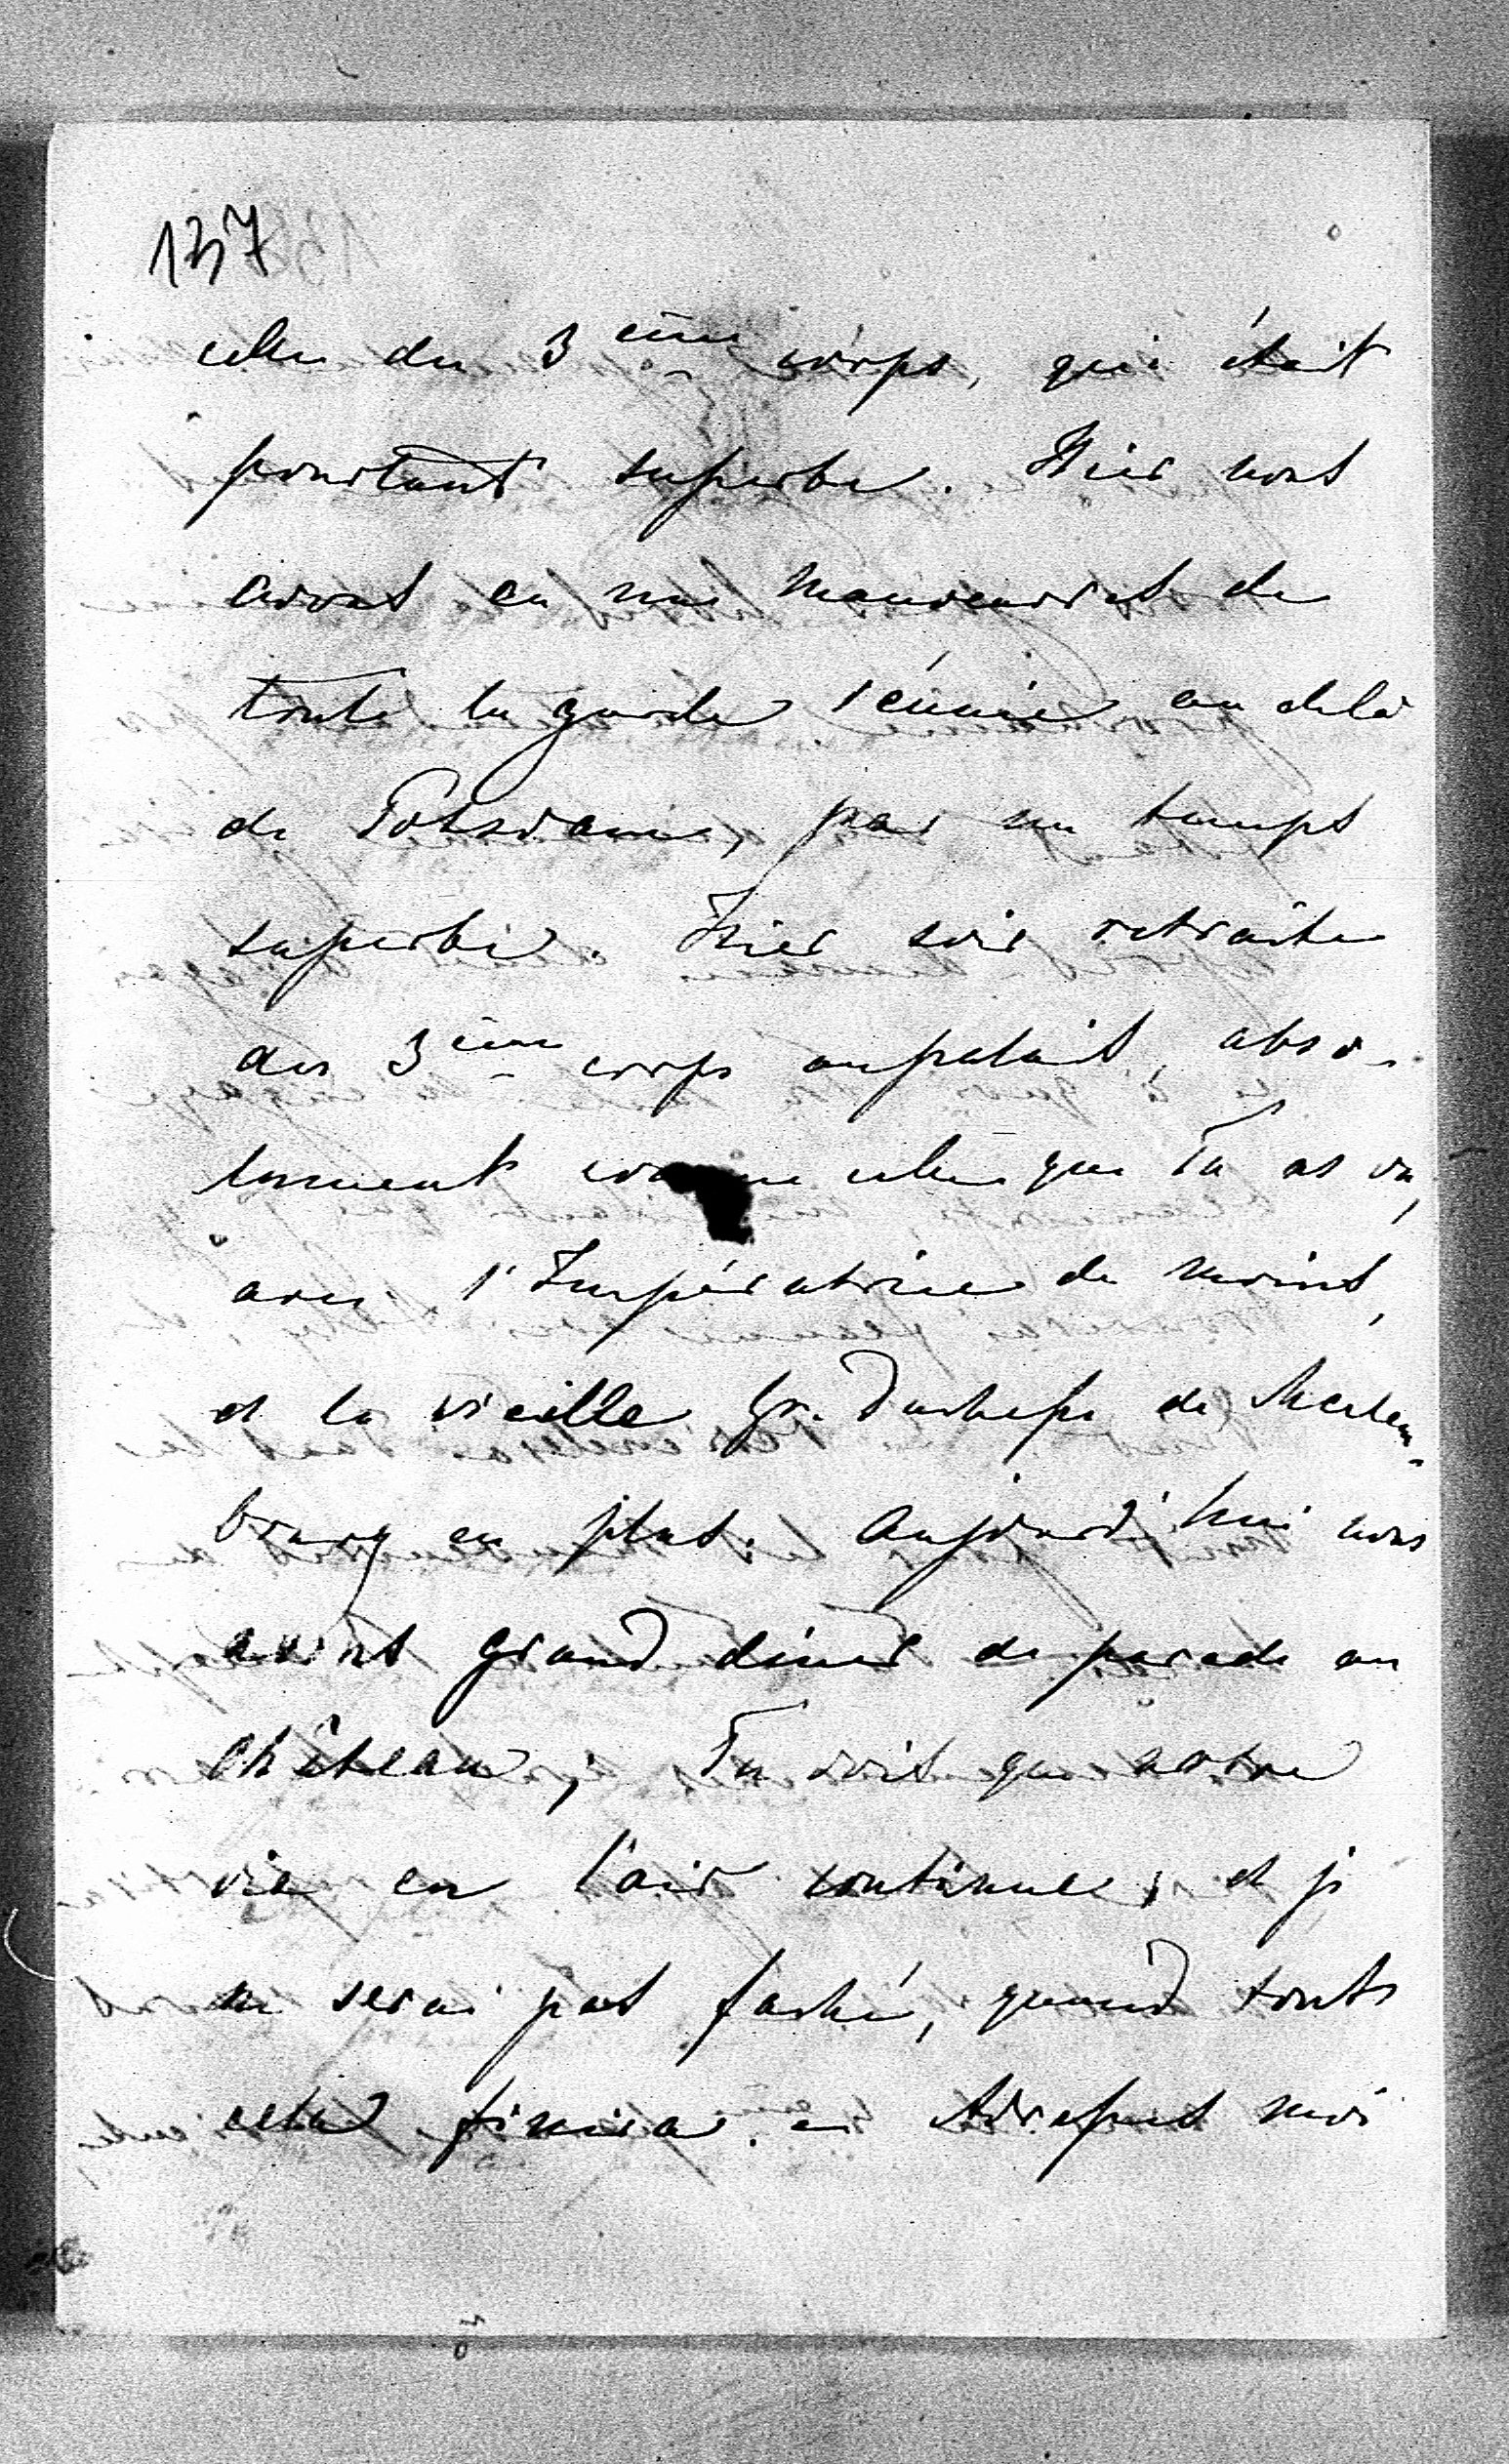 137
celle du 3ème corps, qui était
pourtant superbe. Hier nous
avons eu une manoeuvres de
toute la garde réunie au delà
de Potsdame, par un temps
superbe. Hier soir retraite
du 3ème corps au palais, abso-
lument comme celle que Tu as vu,
avec l'Impératrice de moins,
et la vieille Gr. Duchesse de Meclem-
bourg en plus. Aujourd'hui nous
avons grand diner de parade au
château; Tu vois que notre
vie en l'air continue, et je
ne serai pas faché, quand toute
cela finira. – Adressez moi